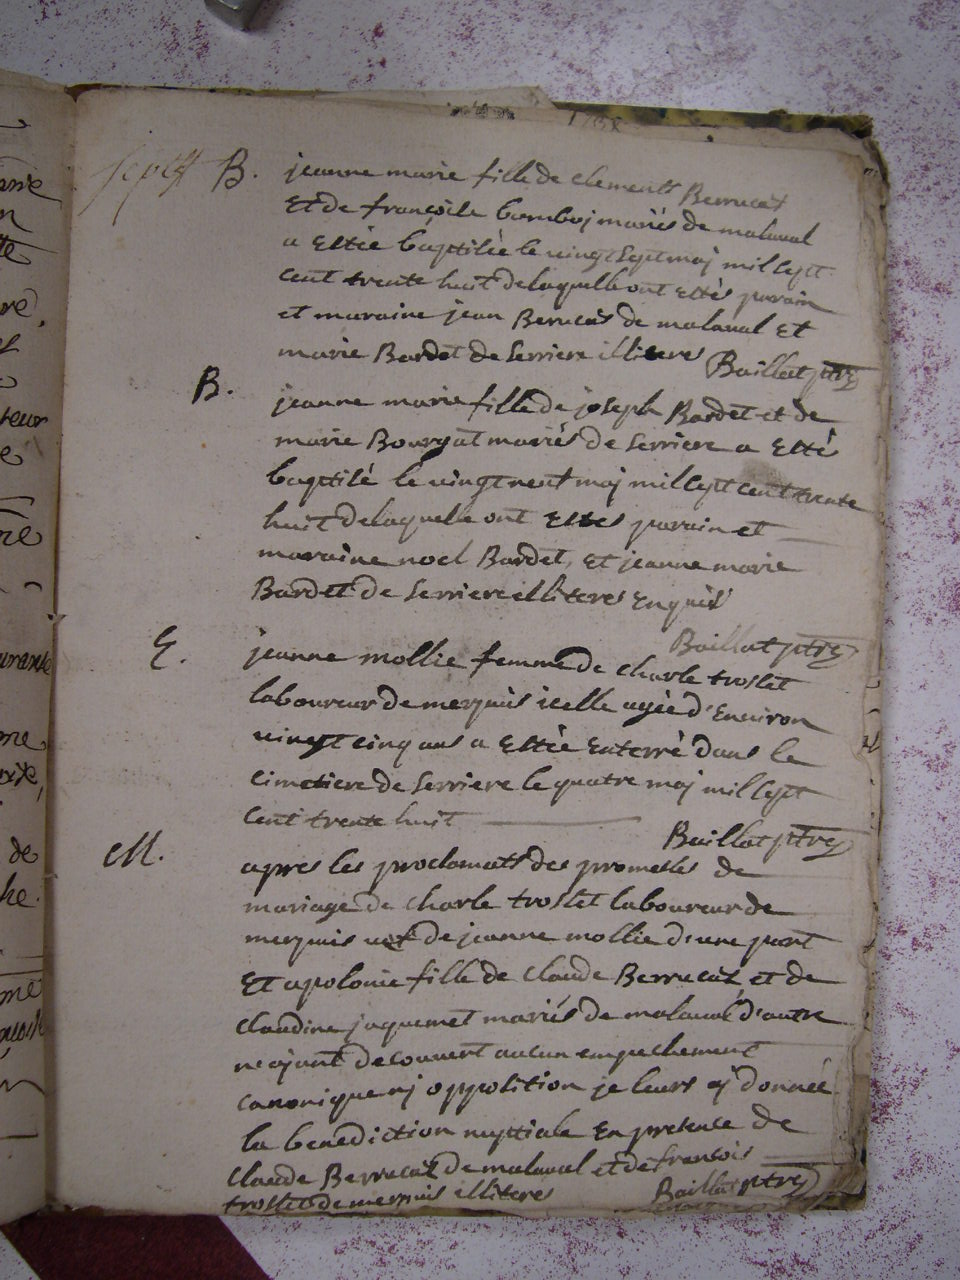 1738
B. jeanne marie fille de clement Berrucat
Et de françoise bomboj mariés de malaval
a Estée baptisée le vingt sept maj mil sept
cent trente huit de laquelle ont Estés parain
et maraine jean Berrucat de malaval et
marie Bardet de serriere illiteres Baillat ptre
B. jeanne marie fille de joseph Bardet et de
marie Bourgat mariés de serriere a Esté
baptisé le vingt neuf maj mil sept cent trente
huit de laquelle ont Estes parain et
maraine noel Bardet, Et jeanne marie
Bardet de serriere illiteres Enquis
Baillat ptre
E. jeanne mollie femme de charle troslet
laboureur de merpuis icelle agée d'Environ
vingt cinq ans a Estée Enterré dans le
cimetiere de serriere le quatre maj mil sept
cent trente huit
Baillat ptre
M. apres les proclamatt des promesses de
mariage de charle troslet laboureur de
merpuis vef de jeanne mollie d'une part
Et apolonie fille de claude Berrucat et de
claudine jaquemet mariés de malaval d'autre
ne ajant decouvert aucun empechement
canonique nj opposition je leurs aj donnée
la benediction nuptiale En presence de
claude Berrucat de malaval et de francois
troslet de merpuis illiteres Baillat ptre